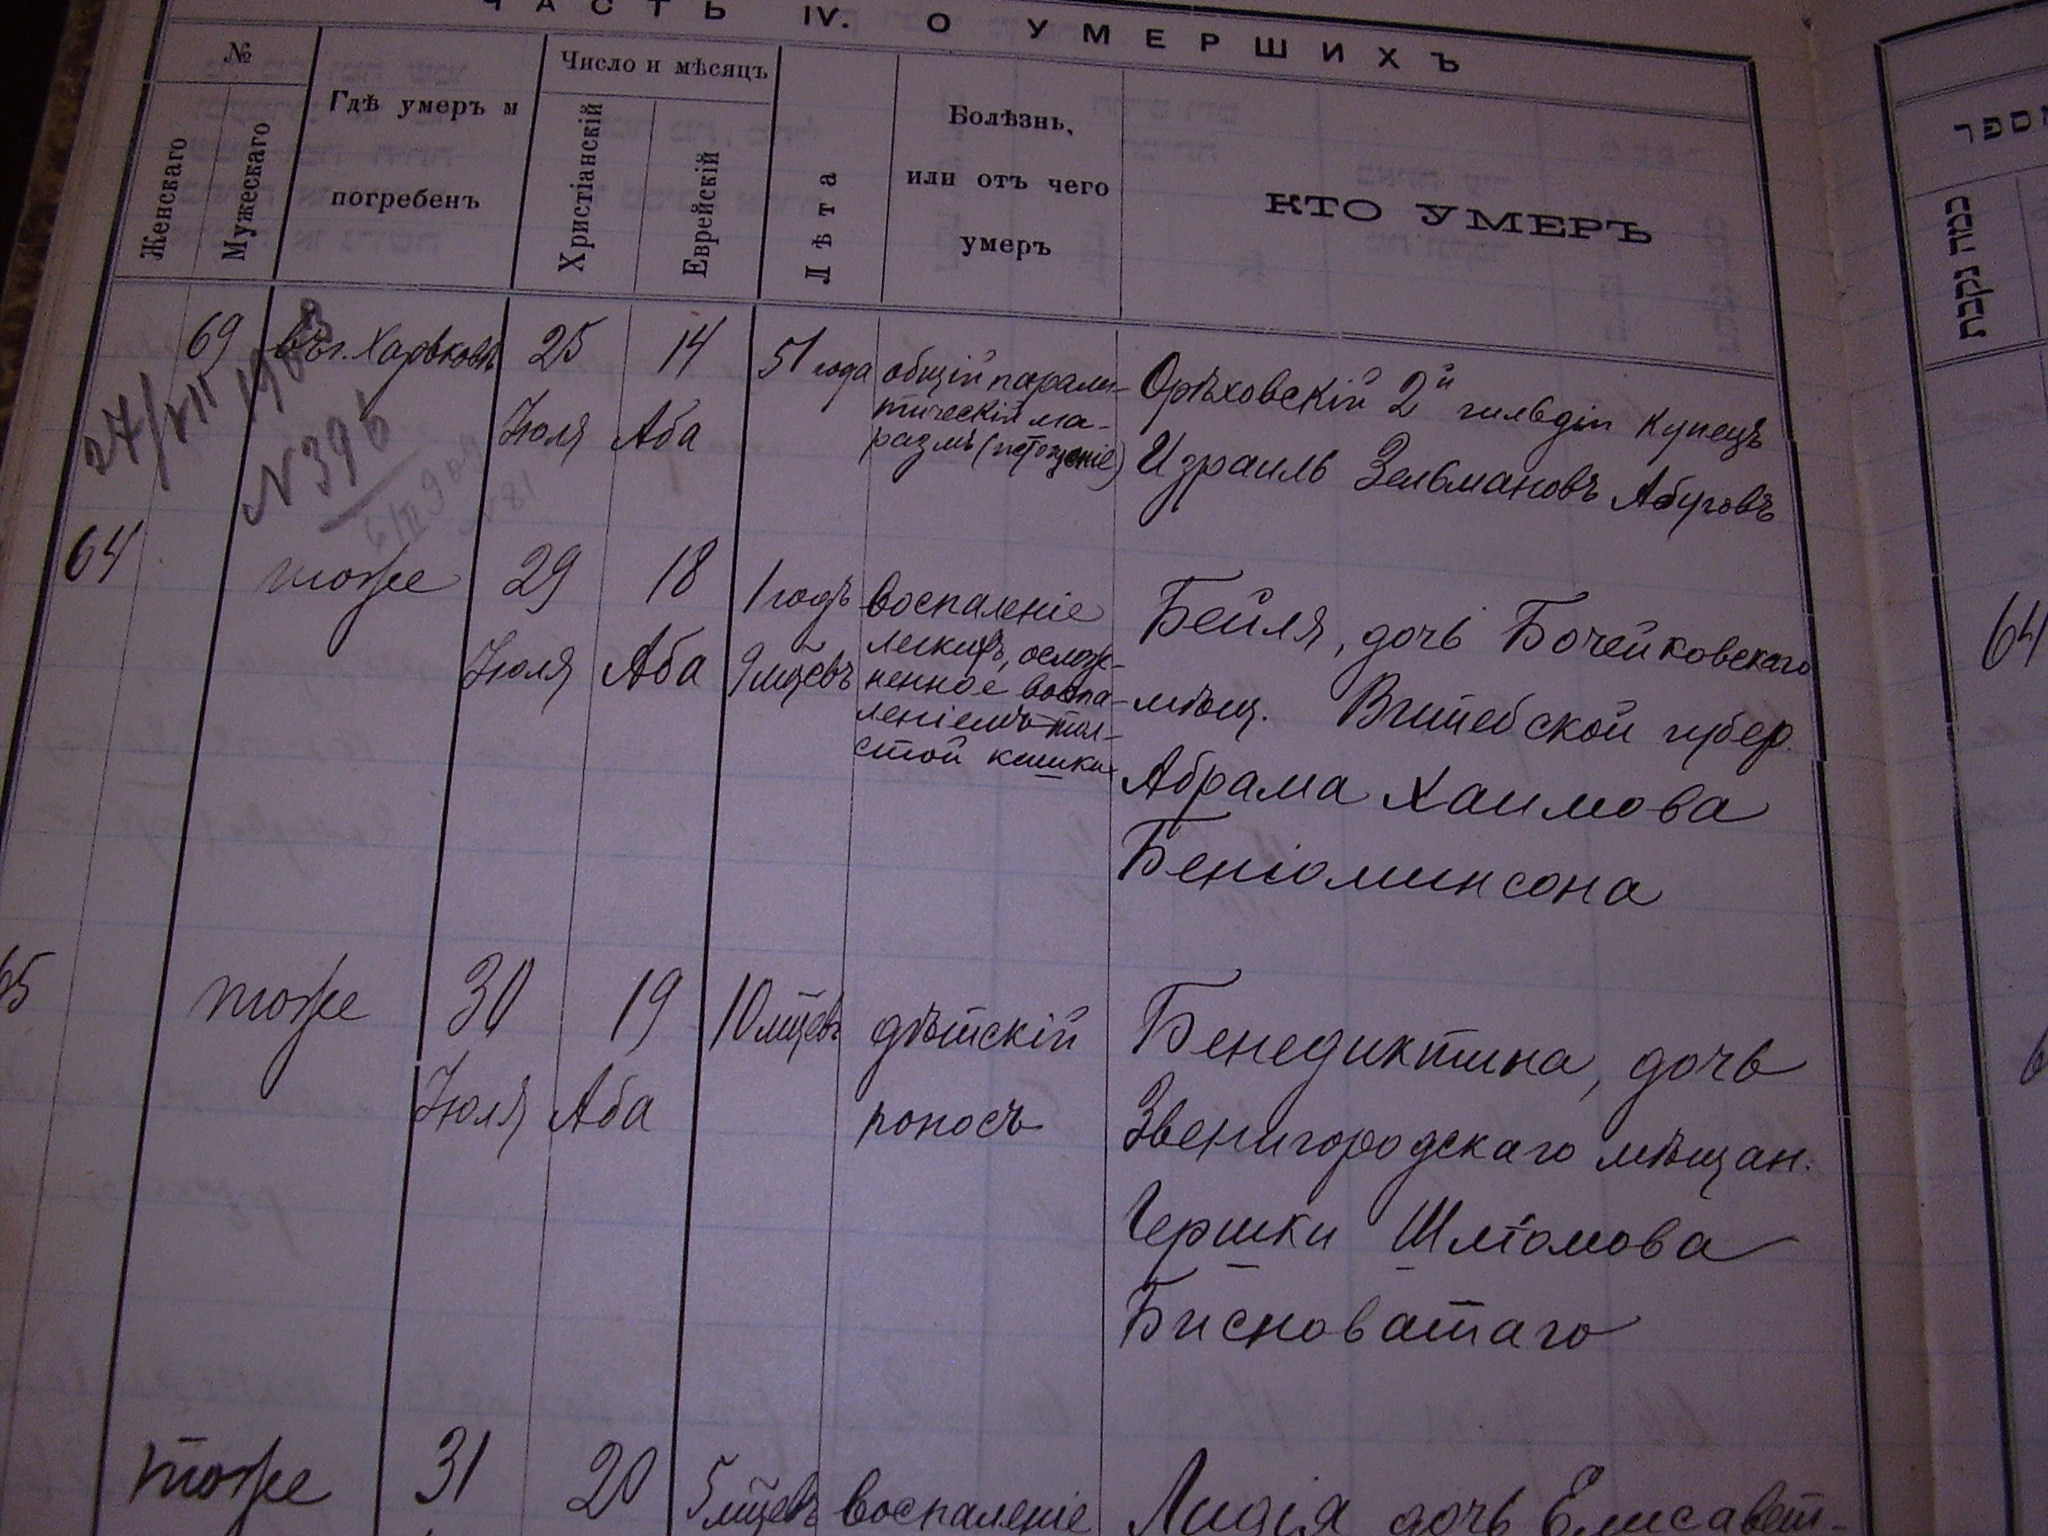 ЧАСТЬ IV. О УМЕРШИХЪ
№
Женскаго
Мужескаго
Гдѣ умеръ и
погребенъ
Число и мѣсяцъ
Христіанскій
Еврейскій
Лѣта
Болѣзнь,
или отъ чего
умеръ
КТО УМЕРЪ
מספר
כמה נקבת
69
въ г. Харьковѣ
25
Іюля
14
Аба
51 года
общій парали-
тическій ма-
размъ (истощеніе)
Орѣховскій 2й гильдіи купецъ
Израиль Зельмановъ Абуговъ
27/VII 1908
N 396
6/III 909
N 81
64
тоже
29
Іюля
18
Аба
1 годъ
9 мцевъ
воспаленіе
легкихъ, ослож-
ненное воспа-
леніемъ тол-
стой кишки
Бейля, дочь Бочейковскаго
мѣщ. Витебской губер.
Абрама Хаимова
Беніоминсона
64
65
тоже
30
Іюля
19
Аба
10 мцевъ
дѣтскій
поносъ
Бенедиктина, дочь
Звенигородскаго мѣщан.
Гершки Шліомова
Бисноватаго
6
тоже
31
20
5 мцевъ
воспаленіе
Лидія дочь Елисавет-